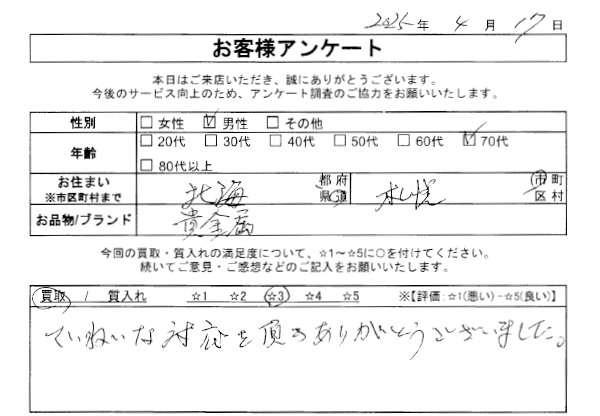 2025年 4月 17日
お客様アンケート
本日はご来店いただき、誠にありがとうございます。
今後のサービス向上のため、アンケート調査のご協力をお願いいたします。
性別 □ 女性 ☑ 男性 □ その他
年齢 □ 20代 □ 30代 □ 40代 □ 50代 □ 60代 ☑ 70代
□ 80代以上
お住まい 北海 都府 札幌 市町
※市区町村まで 県道 区村
お品物/ブランド 貴金属
今回の買取・質入れの満足度について、☆1～☆5に○を付けてください。
続いてご意見・ご感想などのご記入をお願いいたします。
買取 / 質入れ ☆1 ☆2 ☆3 ☆4 ☆5 ※【評価:☆1(悪い)-☆5(良い)】
ていねいな対応を頂きありがとうございました。